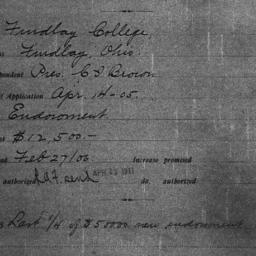 Findlay College,
Findlay, Ohio.
Pres. C I Brown
Application Apr. 14-05.
Endowment
$12,500.-
Feb 27/06 Increase promised
authorized R.A.F. send APR 25 1911 do. authorized
Last 1/4 of $50000 new endowment